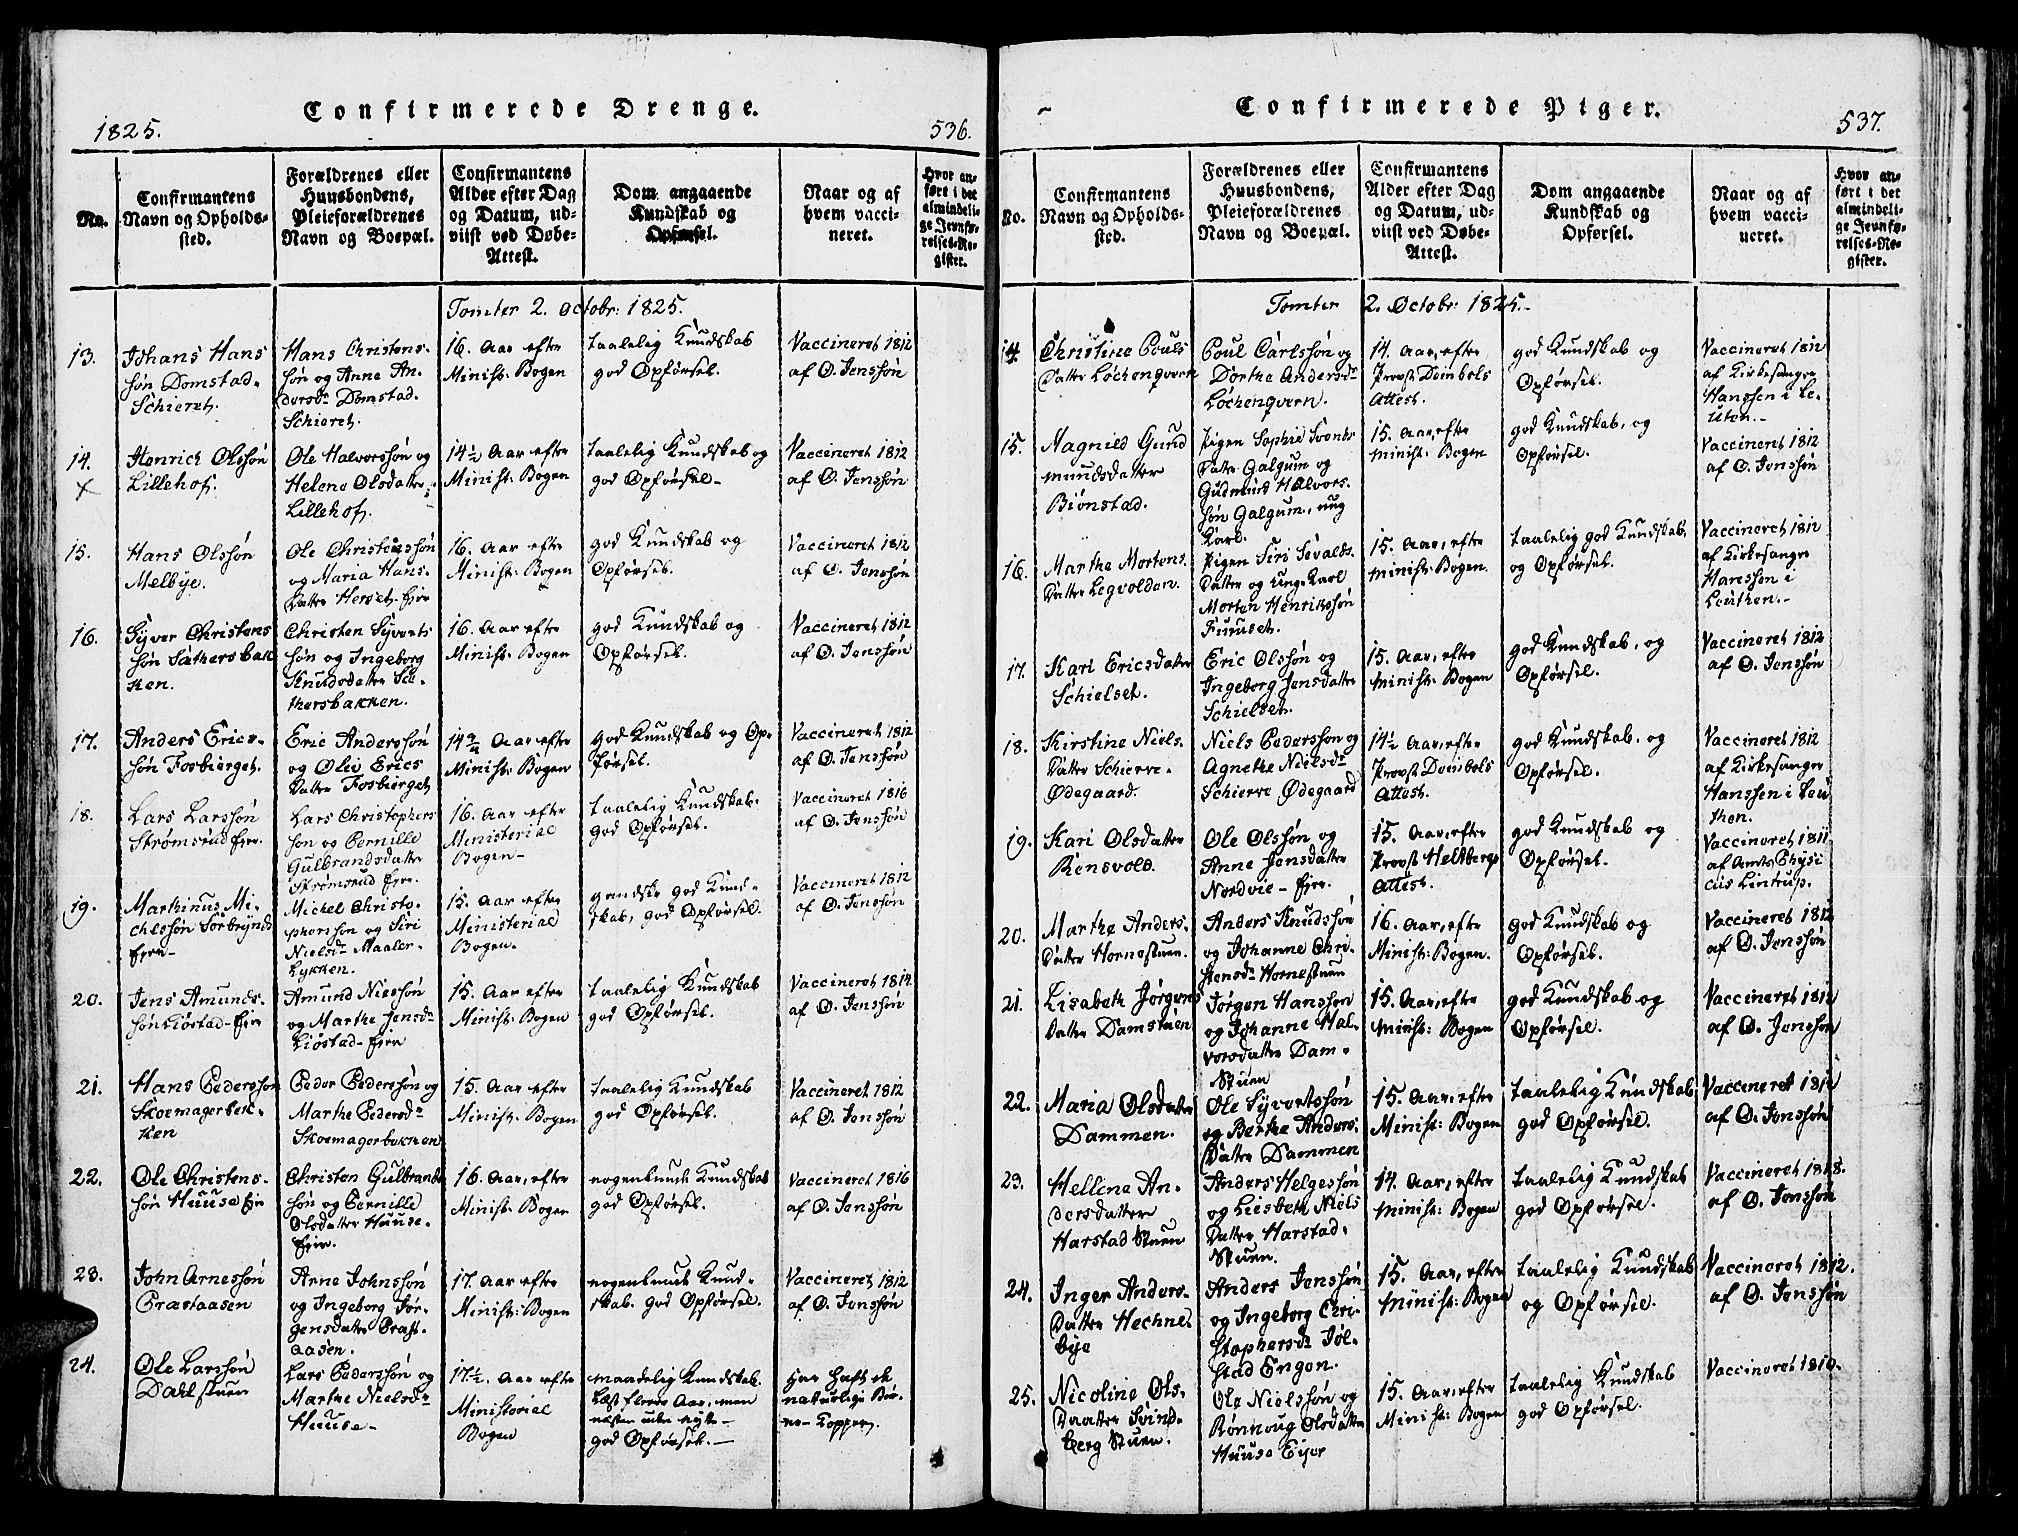 Confirmerede Drenge.
1825.
536.
No.
Confirmantens
Navn og Opholds-
sted.
Forældrenes eller
Huusbondens,
Pleieforældrenes
Navn og Boepæl.
Confirmantens
Alder efter Dag
og Datum, ud-
viist ved Døbe-
Attest.
Dom angaaende
Kundskab og
Opførsel.
Naar og af
hvem vacci-
neret.
Hvor an-
ført i det
almindeli-
ge Jevnfø-
relses-Re-
gister.
Tomter 2. Octobr: 1825.
13.
Johans Hans
søn Domstad-
Schieret.
Hans Christens-
søn og Anne An-
dersdr Domstad-
Schieret.
16. Aar efter
Minist: Bogen
taalelig Kundskab
god Opførsel.
Vaccineret 1812
af O. Jenssøn
14.
Henrich Olssøn
Lillehof.
Ole Halvorssøn og
Helene Olsdatter
Lillehof.
14½ Aar efter
Minist: Bogen
taalelig Kundskab og
god Opførsel-
Vaccineret 1812
af O. Jenssøn
15.
Hans Olssøn
Melbye.
Ole Christenssøn
og Maria Hans-
Datter Herset-Eier
16. Aar efter
Minist: Bogen
god Kundskab og
Opførsel.
Vaccineret 1812
af O. Jenssøn
16.
Syver Christens
søn Sæthersbak
ken.
Christen Syverts
søn og Ingeborg
Knudsdatter Sæ-
thersbakken.
16. Aar efter
Minist: Bogen
god Kundskab og
Opførsel.
Vaccineret 1812
af O. Jenssøn
17.
Anders Erics-
søn Fosbierget.
Eric Anderssøn
og Olei Erics
Datter Fosbierget
14¾ Aar efter
Minist: Bogen
god Kundskab og Op-
førsel.
Vaccineret 1812
af O. Jenssøn
18.
Lars Larssøn
Strømsrud Eier.
Lars Christophers
søn og Pernille
Gulbrandsdatter
Strømsrud Eier.
16. Aar efter
Ministerial
Bogen-
taalelig Kundskab.
god Opførsel.
Vaccineret 1816
af O. Jenssøn
19.
Marthinus Mi-
chelsøn
Eier-
Michel Christo-
pherssøn og Siri
Nielsdr Maaler-
Lykken.
15. Aar efter
Ministerial
Bogen.
gandske god Kund-
skab, god Opførsel.
Vaccineret 1812
af O. Jenssøn
20.
Jens Amunds-
søn Liøstad-Eier
Amund Nielssøn
og Marthe Jensdr
Liøstad-Eier
15. Aar efter
Minist: Bogen
taalelig Kundskab
god Opførsel.
Vaccineret 1814
af O. Jenssøn
21.
Hans Pederssøn
Skoemagerbek-
ken
Peder Pederssøn og
Marthe Pedersdr
Skoemagerbekken
15. Aar efter
Minist: Bogen
taalelig Kundskab
god Opførsel.
Vaccineret 1812
af O. Jenssøn
22.
Ole Christens-
søn Huuse Eier
Christen Gulbrands
søn og Pernille
Olsdatter Huuse-
Eier.
16. Aar, efter
Minist: Bogen
nogenlunde Kundskab
god Opførsel.
Vaccineret 1816
af O. Jenssøn
23.
John Arnessøn
Præstaasen
Arne Johnssøn
og Ingeborg Jør-
gensdatter Præst-
aasen.
17. Aar efter
Minist: Bogen
nogenlunde Kund-
skab. god Opførsel.
Vaccineret 1812
af O. Jenssøn
24.
Ole Larssøn
Dahlstuen
Lars Pederssøn og
Marthe Nielsdr
Huuse-
17½. Aar efter
Ministerial
Bogen
maadelig Kundskab.
Læst flere Aar, men
næsten uden Nytte-
god Opførsel.-
Har haft de
naturlige Bør-
ne-Kopper,
Confirmerede Piger.
537.
No.
Confirmantens
Navn og Opholds-
sted.
Forældrenes eller
Huusbondens,
Pleieforældrenes
Navn og Boepæl.
Confirmantens
Alder efter Dag
og Datum, ud-
viist ved Døbe-
Attest.
Dom angaaende
Kundskab og
Opførsel.
Naar og af
hvem vacci-
neret.
Hvor an-
ført i det
almindeli-
ge Jevnfø-
relses-Re-
gister.
Tomter 2. Octobr: 1825.-
14.
Christine Pouls
Datter Løchenqvern
Poul Carlssøn og
Dorthe Andersdr
Løchenqvern.
14. Aar, efter
Provst Dombols
Attest.
god Kundskab og
Opførsel.
Vaccineret 1812
af Kirkesanger
Hanssen i Lø-
iten.-
15.
Magnild Gund
mundsdatter
Biønstad.
Pigen Sophie Svends
Datter Galgum og
Gudmund Halvors-
søn Galgum, ung
Karl.
15. Aar, efter
Minist: Bogen
god Kundskab, og
Opførsel.
Vaccineret 1812
af O. Jenssøn
16.
Marthe Mortens
Datter Legvolden.
Pigen Siri Sevalts
Datter og Unge Karl
Morten Henrikssøn
Furuset.
15. Aar, efter
Minist: Bogen.
taalelig god Kundskab,
og Opførsel.
Vaccineret 1812
af Kirkesanger
Hanssøn i
Leuthen.-
17.
Kari Ericsdatter
Schielset.
Eric Olssøn og
Ingeborg Jensdatter
Schielset.
15. Aar, efter
Minist: Bogen
god Kundskab, og
Opførsel.
Vaccineret 1812
af O. Jenssøn
18.
Kirstine Niels-
Datter Schierve-
Ødegaard.
Niels Pederssøn og
Agnethe Nielsdr
Schierve Ødegaard
14½ Aar, efter
Provst Dombols
Attest.
god Kundskab, og
Opførsel.
Vaccineret 1812
af Kirkesanger
Hanssen i Leu
then.
19.
Kari Olsdatter
Rensvold.
Ole Olssøn og
Anne Jensdatter
Nordvie-Eier.
15. Aar, efter
Provst Heltbergs
Attest.
god Kundskab og
Opførsel.
Vaccineret 1811
af Amts Physi
cus Lintrup.
20.
Marthe Anders-
Datter Hornestuen.
Anders Knudssøn
og Johanne Chri-
stensdr Hornestuen
16. Aar, efter
Minist: Bogen.
god Kundskab og
Opførsel.
Vaccineret 1812
af O. Jenssøn
21.
Lisabeth Jørgens
Datter Damstuen
Jørgen Hanssøn
og Johanne Hal-
vorsdatter Dam-
Stuen
15. Aar, efter
Minist: Bogen
god Kundskab og
Opførsel.
Vaccineret 1812
af O. Jenssøn
22.
Maria Olsdatter
Dammen.
Ole Syvertssøn
og Berthe Anders-
Datter Dammen
15. Aar, efter
Minist: Bogen
taalelig Kundskab
god Opførsel.
Vaccineret 1812
af O. Jenssøn
23.
Helline An-
dersdatter
Harstad Stuen
Anders Helgessøn
og Liesbeth Niels
Datter Harstad-
Stuen.
14. Aar, efter
Minist: Bogen
taalelig Kundskab
god Opførsel.
Vaccineret 1818.
af O. Jenssøn
24.
Inger Anders-
Datter Hechnes
bye
Anders Jenssøn
og Ingeborg Chri-
stophersdr Jøl-
stad Engen.
15. Aar, efter
Minist: Bogen
taalelig Kundskab
og Opførsel.
Vaccineret 1812.
af O. Jenssøn
25.
Nicoline Ols-
Daatter Svind-
berg Stuen.
Ole Nielssøn og
Rønnoug Olsdatter
Huuse Eier
15. Aar, efter
Minist: Bogen
taalelig Kundskab
god Opførsel.
Vaccineret